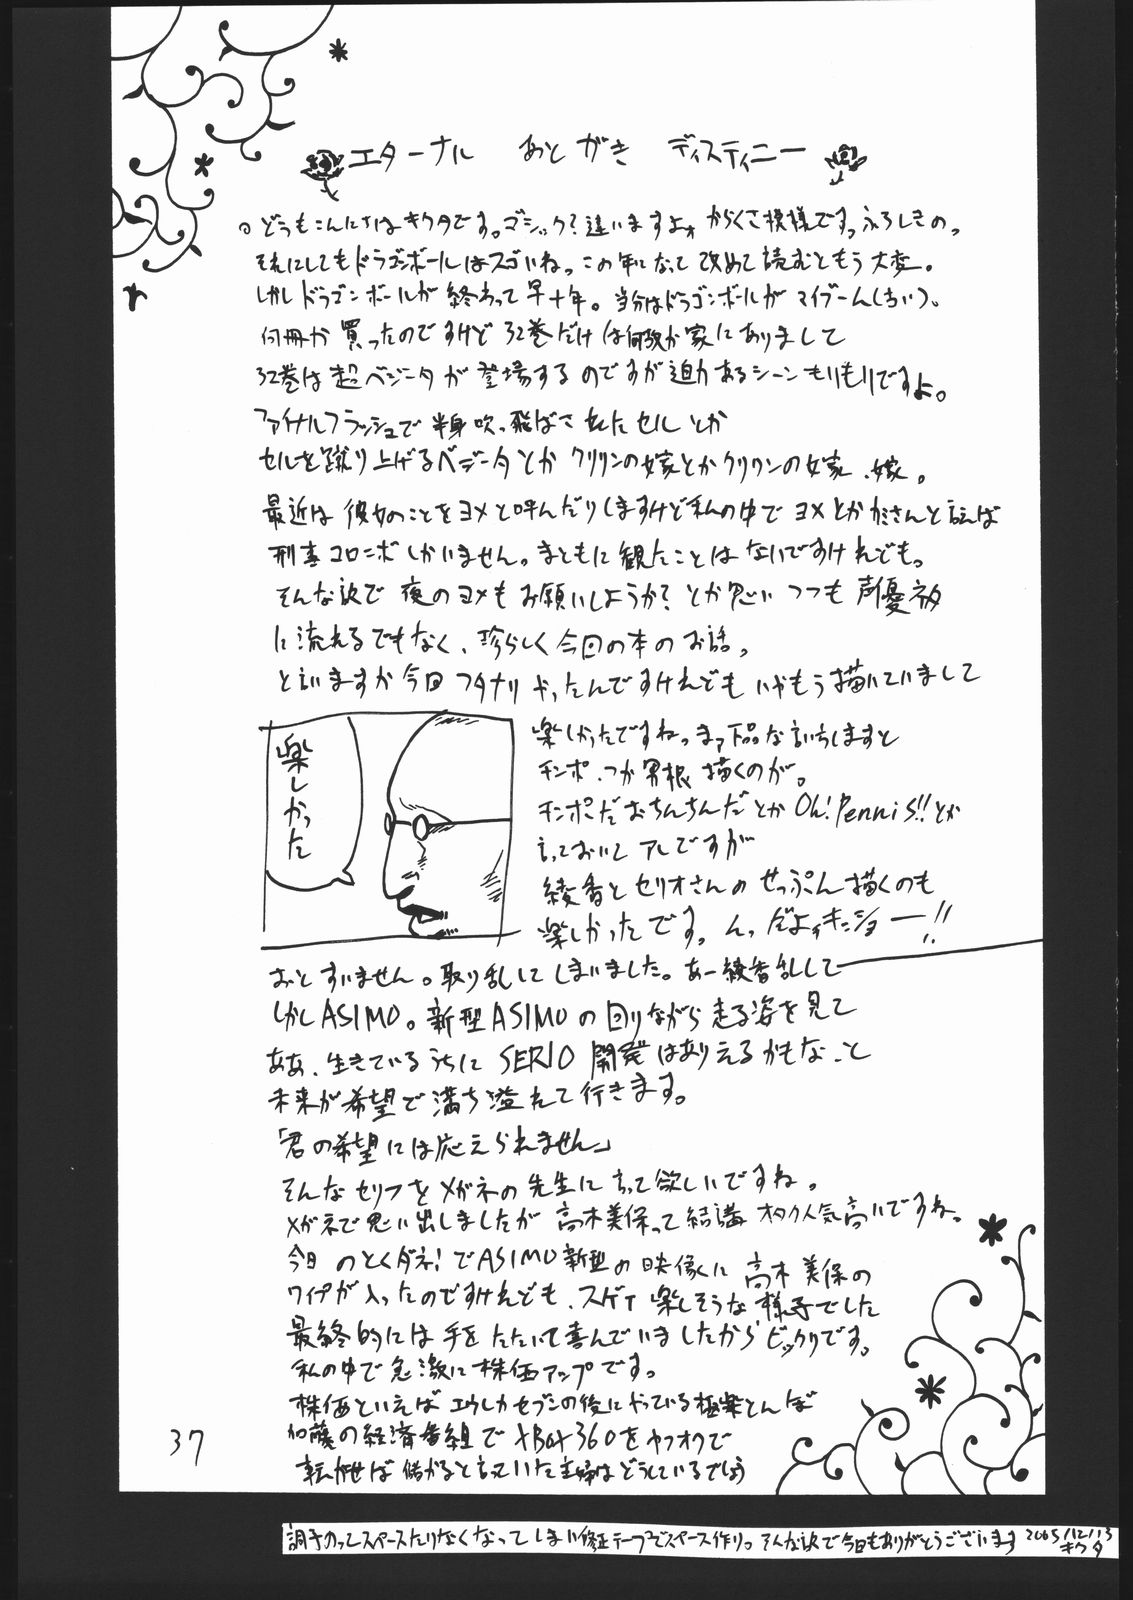 エターナル あとがき ディスティニー
。どうもこんにちはキクタです。ゴシック?違いますよォからくさ模様です。ふろしきの。
それにしてもドラゴンボールはスゴいね。この年になって改めて読むともう大変。
しかしドラゴンボールが終わって早十年。当分はドラゴンボールがマイブーム(古い)。
何冊か買ったのですけど32巻だけは何故か家にありまして
32巻は超ベジータが登場するのですが迫力あるシーンもりもりですよ。
ファイナルフラッシュで半身吹っ飛ばされたセルとか
セルを蹴り上げるベジータとかクリリンの嫁とかクリリンの嫁、嫁。
最近は彼女のことをヨメと呼んだりしますけど私の中でヨメとかカミさんと言えば
刑事コロンボしかいません。まともに観たことはないですけれども。
そんな訳で夜のヨメもお願いしようか?とか思いつつも声優ネタ
に流れるでもなく、珍らしく今回の本のお話。
と言いますか今回フタナリやったんですけれどもいやもう描いていまして
楽しかったですね。まァ下品な言いちしますと
チンポ、つか男根描くのが。
チンポだおちんちんだとかOh!PenniS!!とか
言っておいてアレですが
綾香とセリオさんのせっぷん描くのも
楽しかったです。んっだよォキンショー!!
楽しかった
おとすいません。取り乱してしまいました。あー綾香乱して
しかしASIMO。新型ASIMOの回りながら走る姿を見て
ああ、生きているうちにSERIO開発はありえるかもなっと
未来が希望で満ち溢れて行きます。
「君の希望には応えられません」
そんなセリフをメガネの先生に言って欲しいですね。
メガネで思い出しましたが高木美保って結講オタク人気高いですね。
今日のとくダネ!でASIMO新型の映像に高木美保の
ワイプが入ったのですけれども、スゲイ楽しそうな様子でした
最終的には手をたたいて喜んでいましたからビックリです。
私の中で急激に株価アップです。
株価といえばエウレカセブンの後にやっている極楽とんぼ
加藤の経済番組でXBOX360をヤフオクで
転がせば儲かると言っていた主婦はどうしているでしょう
37
調子のってスペースたりなくなってしまい修正テープでスペース作り。そんな訳で今回もありがとうございます 2005/12/13
キクタ